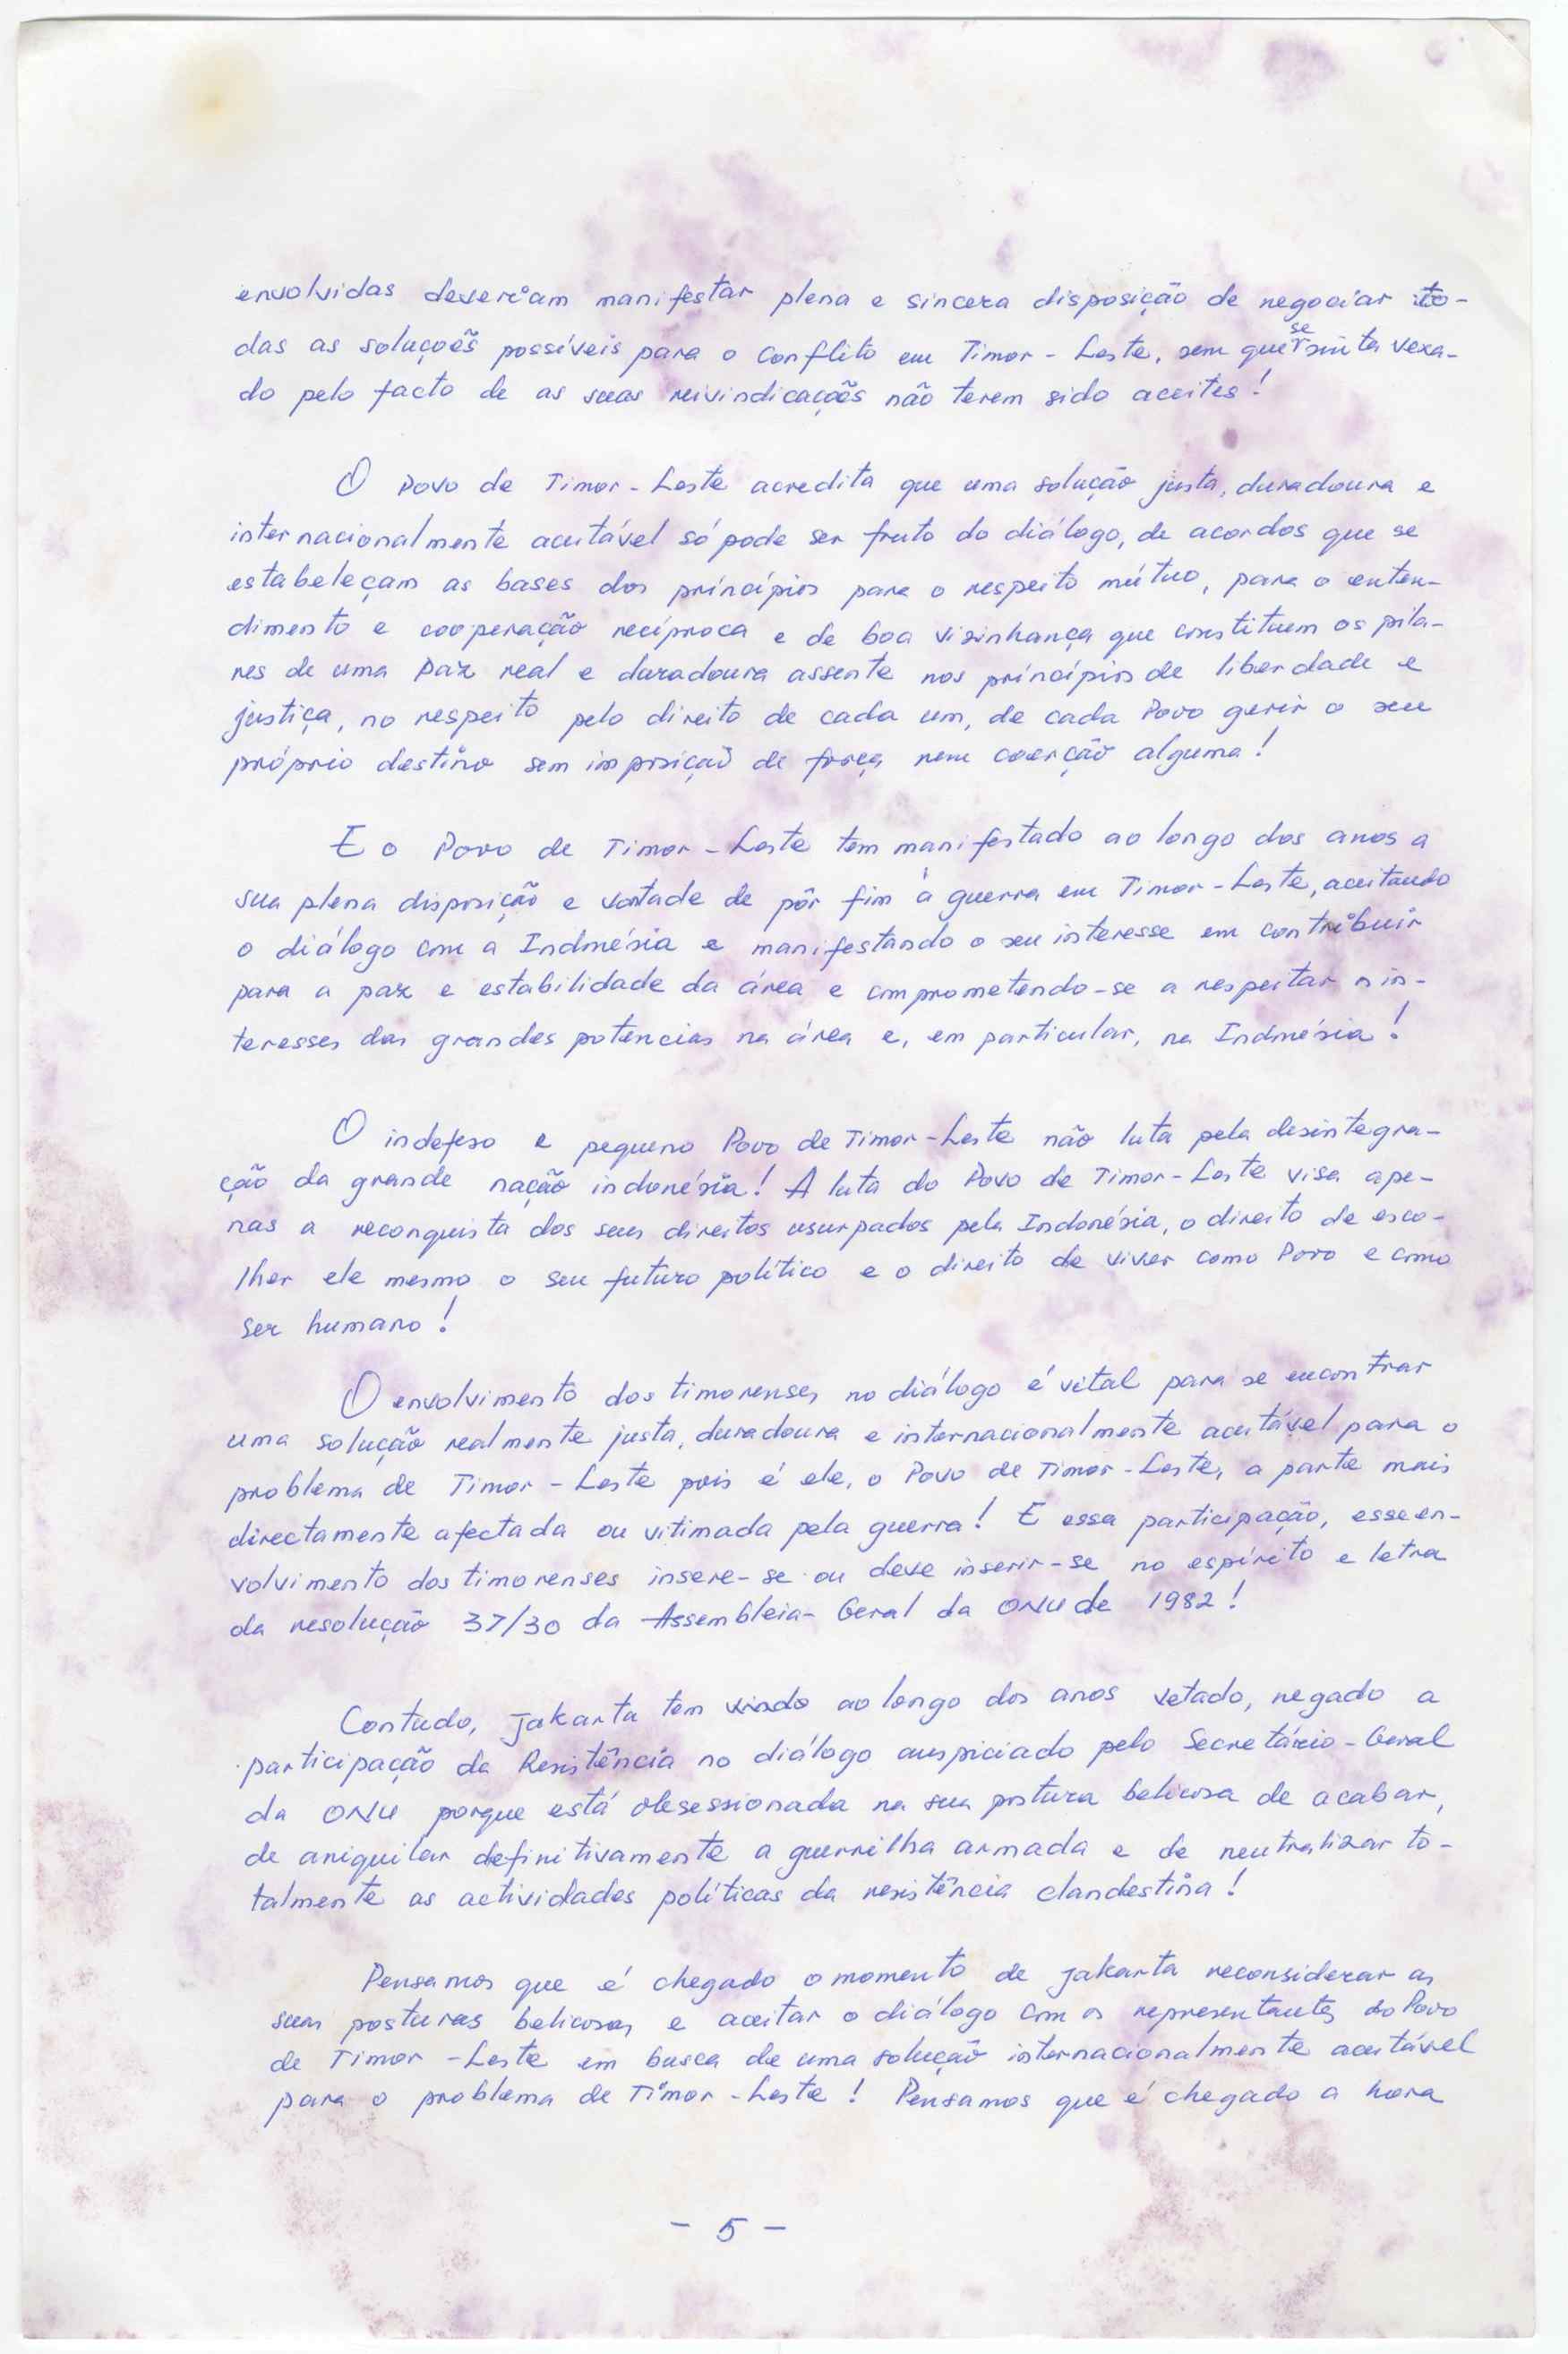 envolvidas deveriam manifestar plena e sincera disposição de negociar to-
das as soluções possíveis para o conflito em Timor-Leste, sem que se sinta vexa-
do pelo facto de as suas reivindicações não terem sido aceites!
O Povo de Timor-Leste acredita que uma solução justa, duradoura e
internacionalmente aceitável só pode ser fruto do diálogo, de acordos que se
estabeleçam as bases dos princípios para o respeito mútuo, para o enten-
dimento e cooperação recíproca e de boa visinhança que constituem os pila-
res de uma Paz real e duradoura assente nos princípios de liberdade e
justiça, no respeito pelo direito de cada um, de cada Povo gerir o seu
próprio destino sem imposição de força nem coerção alguma!
E o Povo de Timor-Leste tem manifestado ao longo dos anos a
sua plena disposição e vontade de pôr fim à guerra em Timor-Leste, aceitando
o diálogo com a Indonésia e manifestando o seu interesse em contribuir
para a paz e estabilidade da área e comprometendo-se a respeitar os in-
teresses das grandes potências na área e, em particular, na Indonésia!
O indefeso e pequeno Povo de Timor-Leste não luta pela desintegra-
ção da grande nação indonésia! A luta do Povo de Timor-Leste visa ape-
nas a reconquista dos seus direitos usurpados pela Indonésia, o direito de esco-
lher ele mesmo o seu futuro político e o direito de viver como Povo e como
ser humano!
O envolvimento dos timorenses no diálogo é vital para se encontrar
uma solução realmente justa, duradoura e internacionalmente aceitável para o
problema de Timor-Leste pois é ele, o Povo de Timor-Leste, a parte mais
directamente afectada ou vitimada pela guerra! E essa participação, esse en-
volvimento dos timorenses insere-se ou deve inserir-se no espírito e letra
da resolução 37/30 da Assembleia-Geral da ONU de 1982!
Contudo, Jakarta tem vindo ao longo dos anos vetado, negado a
participação da Resistência no diálogo auspiciado pelo Secretário-Geral
da ONU porque está obsessionada na sua postura belicosa de acabar,
de aniquilar definitivamente a guerrilha armada e de neutralizar to-
talmente as actividades políticas da resistência clandestina!
Pensamos que é chegado o momento de Jakarta reconsiderar as
suas posturas belicosas e aceitar o diálogo com os representantes do Povo
de Timor-Leste em busca de uma solução internacionalmente aceitável
para o problema de Timor-Leste! Pensamos que é chegado a hora
- 5 -